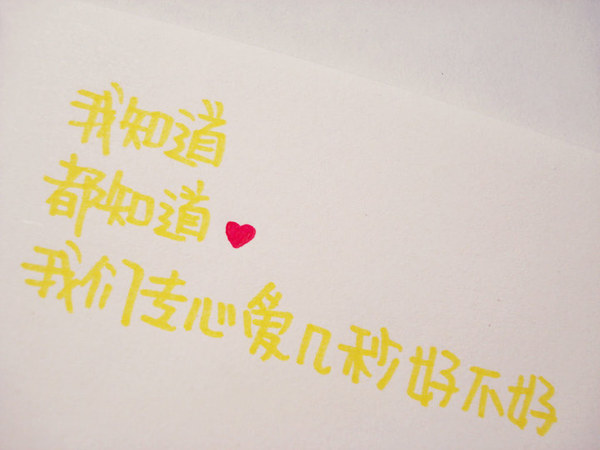 我知道
都知道
我们专心爱几秒好不好